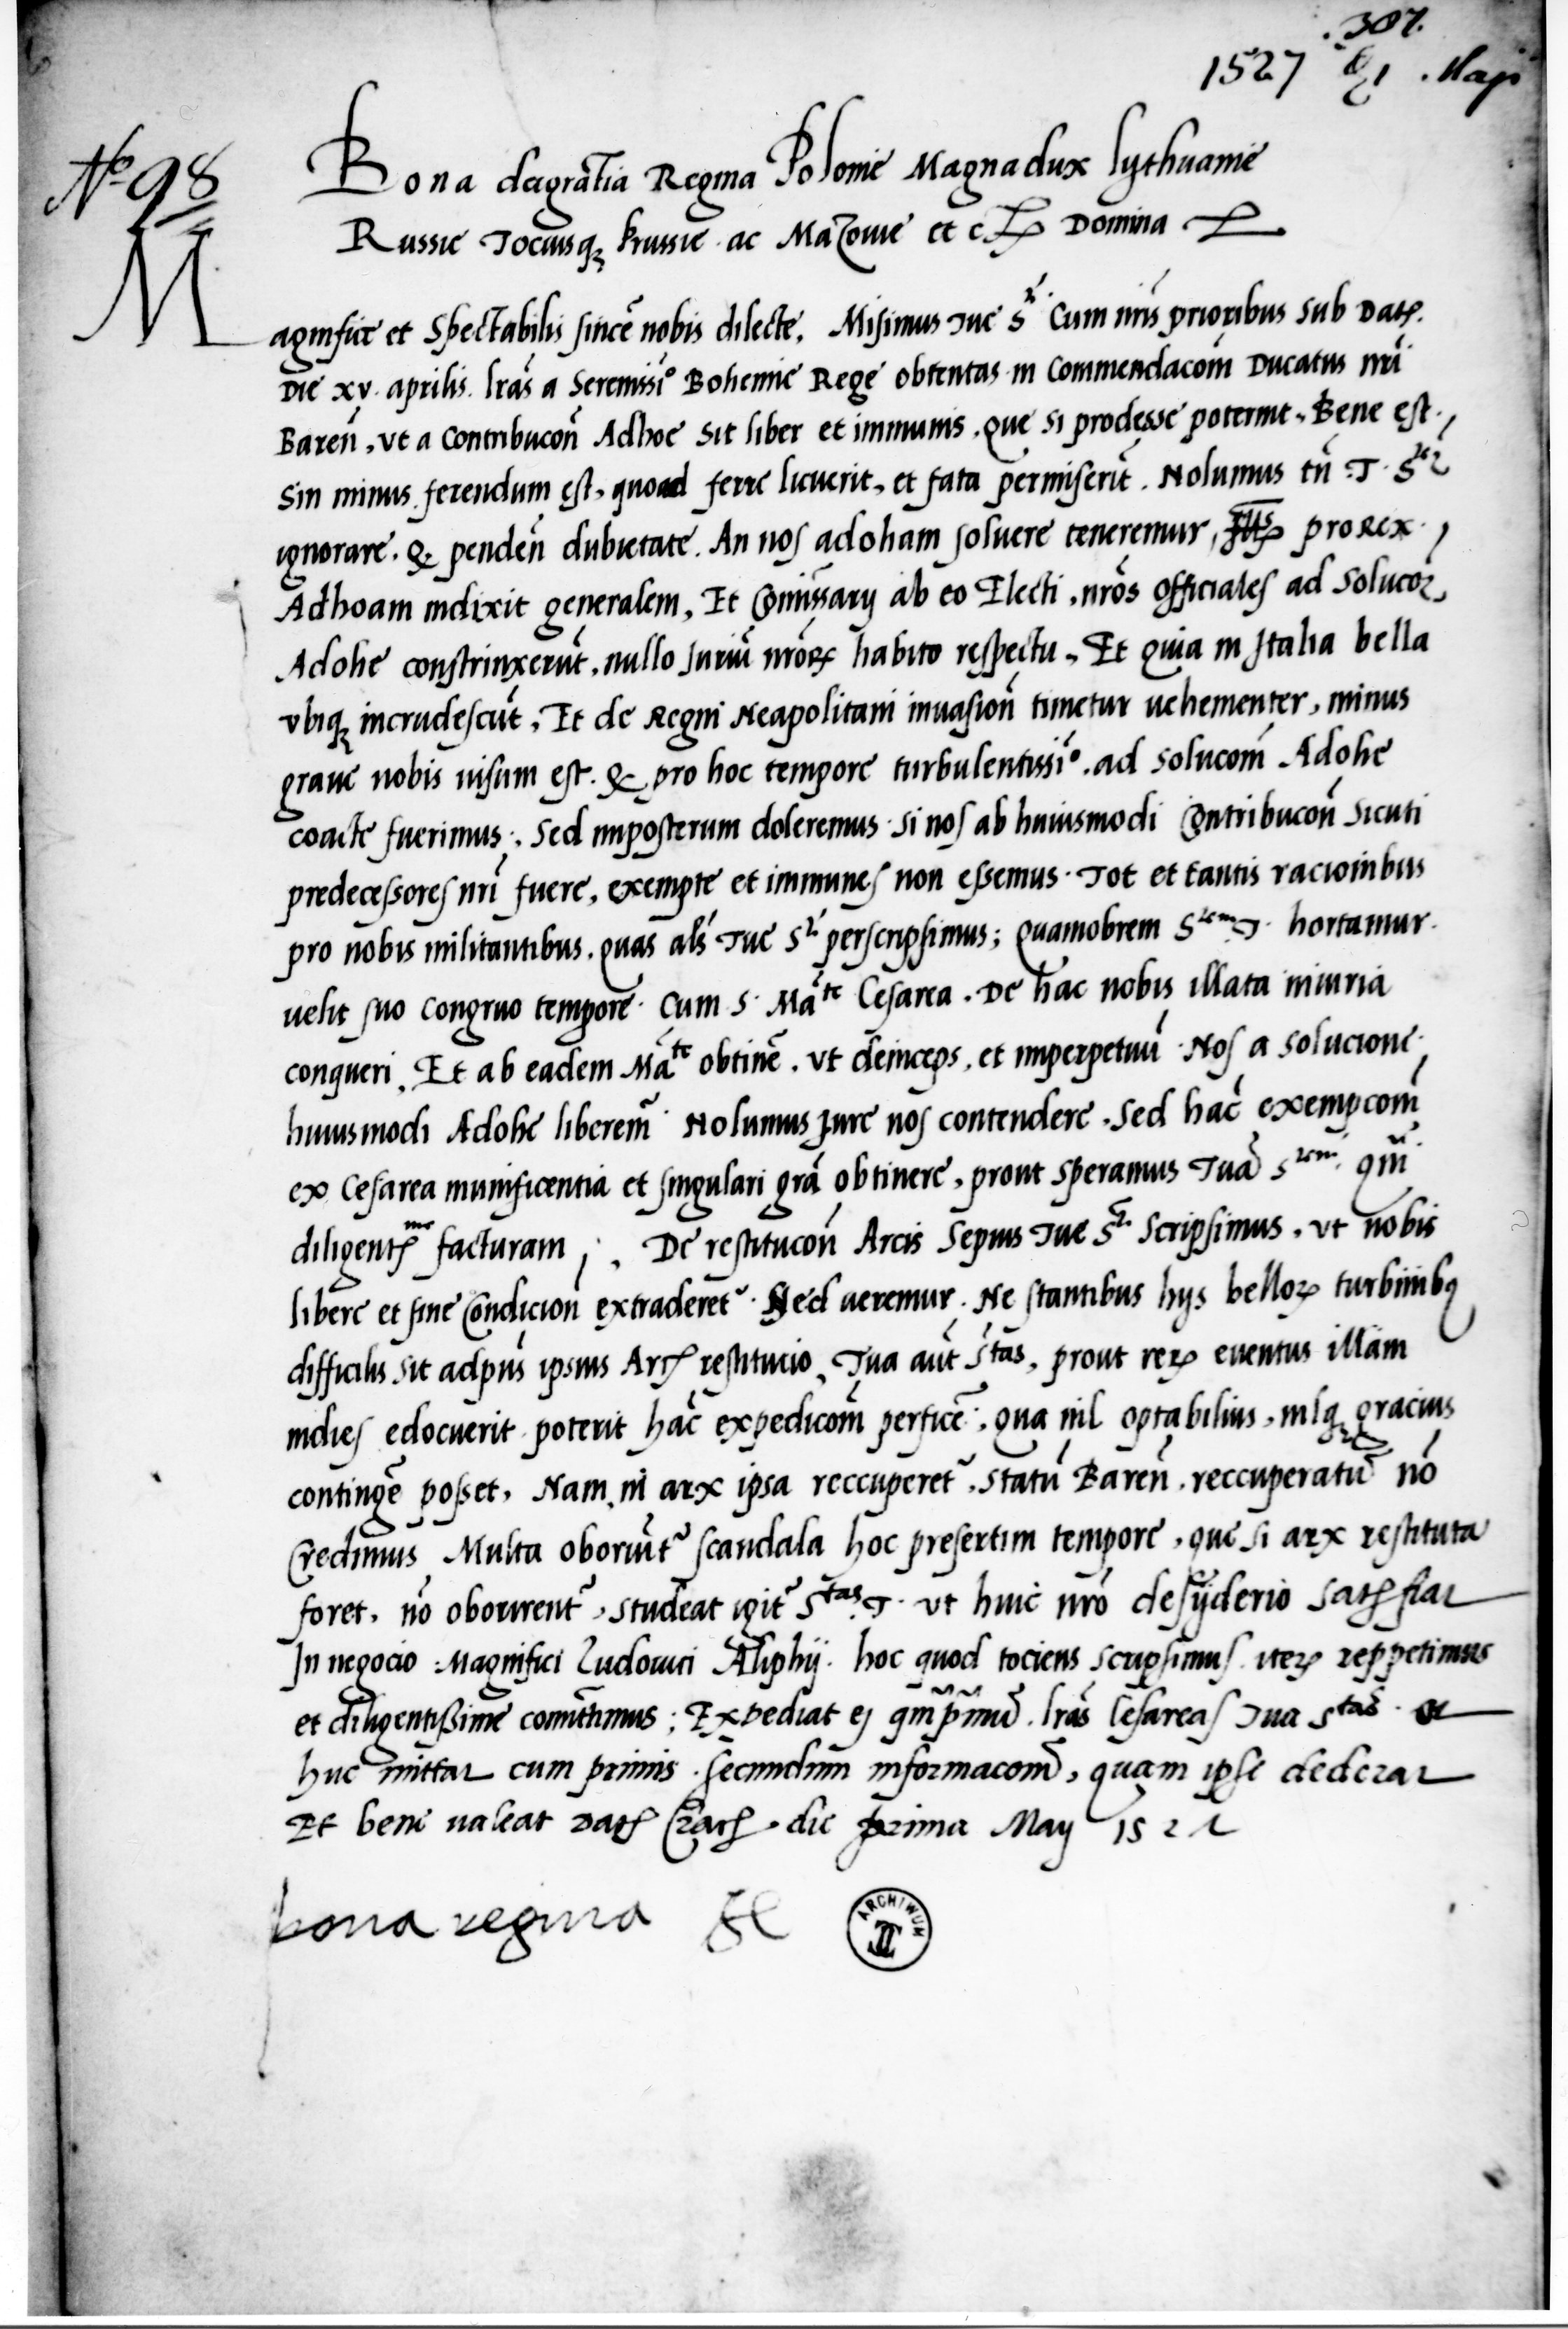 .307.
1527 d 1 . Maji
No 98
Bona dei gr̃atia Regina Polonie Magna dux lythuanie
Russie Tociusqz prussie ac Mazouie et c̃ Domina
Magnifice et Spectabilis sincẽ nobis dilecte. Misimus Tue S. Cum nr̃is prioribus sub Dat.
Die xv. aprilis. lr̃as a Serenissĩo Bohemie Rege obtentas in Commendacom̃ Ducatus nrĩ
Bareñ, vt a Contribucoñ Adhoe sit liber et immunis. que si prodesse poterint, Bene est.,
Sin minus. ferendum est, quoad ferre licuerit, et fata permiserĩt. Nolumus tñ T. S
ignorare. Q pendeñ dubietate. An nos adoham soluere teneremur, prorex.,
Adhoam indixit generalem, Et Com̃issarij ab eo Electi, nrõs officiales ad Solucoz,
Adohe constrinxerũt, nullo Juriũ nrõꝝ habito respectu, Et quia in Italia bella
vbiqz incrudescũt, Et de Regni Neapolitani inuasioñ timetur uehementer, minus
graue nobis uisum est. Q pro hoc tempore turbulentissĩo. ad solucom̃ Adohe
coacte fuerimus; Sed imposterum doleremus. si nos ab huiusmodi Contribucoñ Sicuti
predecessores nrĩ fuere, exempte et immunes non essemus. Tot et tantis racionibus
pro nobis militantibus. quas alš Tue S perscripsimus; Quamobrem S T. hortamur.
uelit suo congruo tempore. Cum S. Mãte Cesarea. De hac nobis illata iniuria
conqueri, Et ab eadem Mãte obtinẽ. vt deinceps, et imperpetuũ. Nos a solucione.,
huiusmodi Adohe liberem̃. Nolumus Jure nos contendere. Sed hãc exempcom̃
ex Cesarea munificentia et singulari grã obtinere, prout speramus Tuã S qm̃
diligentme facturam; De restitucoñ Arcis Sepius Tue S Scripsimus. vt nobis
libere et sine Condicioñ extraderet̃. Sed ueremur. Ne stantibus hijs belloꝝ turbinibq
difficilis sit adpñs ipsius Arc restitucio, Tua aũt Stas, prout reꝝ euentus illam
indies edocuerit poterit hãc expedicom̃ perficẽ, qua nil optabilius, nilqz gracius
contingẽ posset, Nam, ni arx ipsa reccuperet̃, Statũ Bareñ, reccuperatũ nõ
Credimus Multa oboriũt̃ scandala hoc presertim tempore, que si arx restituta
foret, nõ oborirent̃, studeat igit̃ Stas T. vt huic nrõ desyderio Satsfiat
In negocio Magnifici Ludouici Aliphij. hoc quod tociens scripsimus iteꝝ reppetimus
et diligentissime com̃ittimus; Expediat ej qm̃ p̃mũ. lr̃as Cesareas Tua Stas. et
huc mittat cum primis. secundum informacom̃, quam ipse dederat
Et bene ualeat Dat Crac. die prima Maij 1527
bona regina
ARCHIWUM